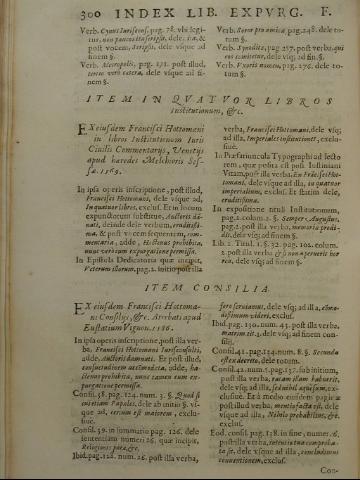 300 INDEX LIB. EXPVRG. F.
Verb. Cyuus Iuriscons. pag. 78. vbi legi-
tur, non pauca transcripsit, dele, & &
post vocem, scripsit, dele vsque ad
finem §.
Verb. Metropolis, pag. 131. post illud,
dele vsque ad fi-
nem §.
Verb. Soror pro amica pag. 248. dele to-
tum §.
Verb. Synodita, pag 257. post verba, qui
eos comitetur, dele vsq; ad finem §.
Verb. Vxoris nomen, pag. 276. dele to-
tum §.
ITEM IN QVATVOR LIBROS
Institutionum, &c.
Ex eiusdem Francisci Hottomani
in libros Institutionum Iuris
Ciuilis Commentarijs, Venetijs
apud haeredes Melchioris Ses-
sae. 1569.
In ipsa operis inscriptione, post illud,
Francisci Hottomani, dele vsque ad,
In quatuor libros, exclus. Et in locum
expunctorum substitue, Auctoris dã-
nati, deinde dele verbum, eruditissi-
ma. & post vocem sequentem, com-
mentaria, adde, Hactenus prohibita,
nunc verò cum expurgatione permissa.
In Epistola Dedicatoria quæ incipit,
Veterum illorum, pag. 2. initio, post illa
verba, Francisci Hottomani, dele vsq;
ad illa, Imperiales institutiones, exclu-
siuè.
In Præfatiuncula Typographi ad lecto
rem, quæ posita est post Iustiniani
Vitam, post illa verba, Eu Francisci Hot-
tomani, dele vsque ad illa, in quatuor
imperialium, exclus. Et statim dele,
eruditissima.
In expositione tituli Institutionum,
pag. 2. column. 2. §. Semper Augustus,
pag. 2. post illa verba, memoria prodi-
dit, dele vsq; ad finem §.
Lib. 2. Titul. 1. §. 32. pag. 102. colum.
2. post illa verba & non aperuerit hor-
rea, dele vsq; ad finem §.
ITEM CONSILIA
Ex eiusdem Francisci Hottoma-
ni Consilijs, &c. Atrebati apud
Eustatium Vignon. 1586.
In ipsa operis inscriptione, post illa ver-
ba, Francisci Hotomani Iurisconsulti,
adde, Auctoris damnati. Et post illud,
adde, ha-
ctenus prohibita, nunc tamen cum ex-
purgatione permissa.
Consil. 38. pag. 124. num. 3. §. Quod si
Papales, dele ab initio §. vs-
que ad, verùm est maiorem, exclu-
siuè.
Consil. 39. in summario pag. 126. dele
sententiam numeri 26. quæ incipit,
&c.
Ibid. pag. 128. num. 26. post illa verba,
dele vsq; ad illa,
exclus.
Ibid. pag. 130. num. 43. post illa verba,
dele vsq; ad finem con-
silij.
Consil. 41. pag. 134. num. 8. §. Secunda
dele totum.
Consil. 42. num. 5. pag. 137. sub initium,
post illa verba, tacam illam haberet,
dele vsq; ad illa, aequum, ex-
clusiuè. Et à medio eiusdem paginæ
post illud verbum, mentio facta est, dele
vsque ad illa, Nobis probabilius, &c.
exclus.
Eod. consil. pag. 138. in fine, numer. 6.
post illa verba, comproba-
ta sit, dele vsque ad illa,
conuentionem, exclus.
Con-